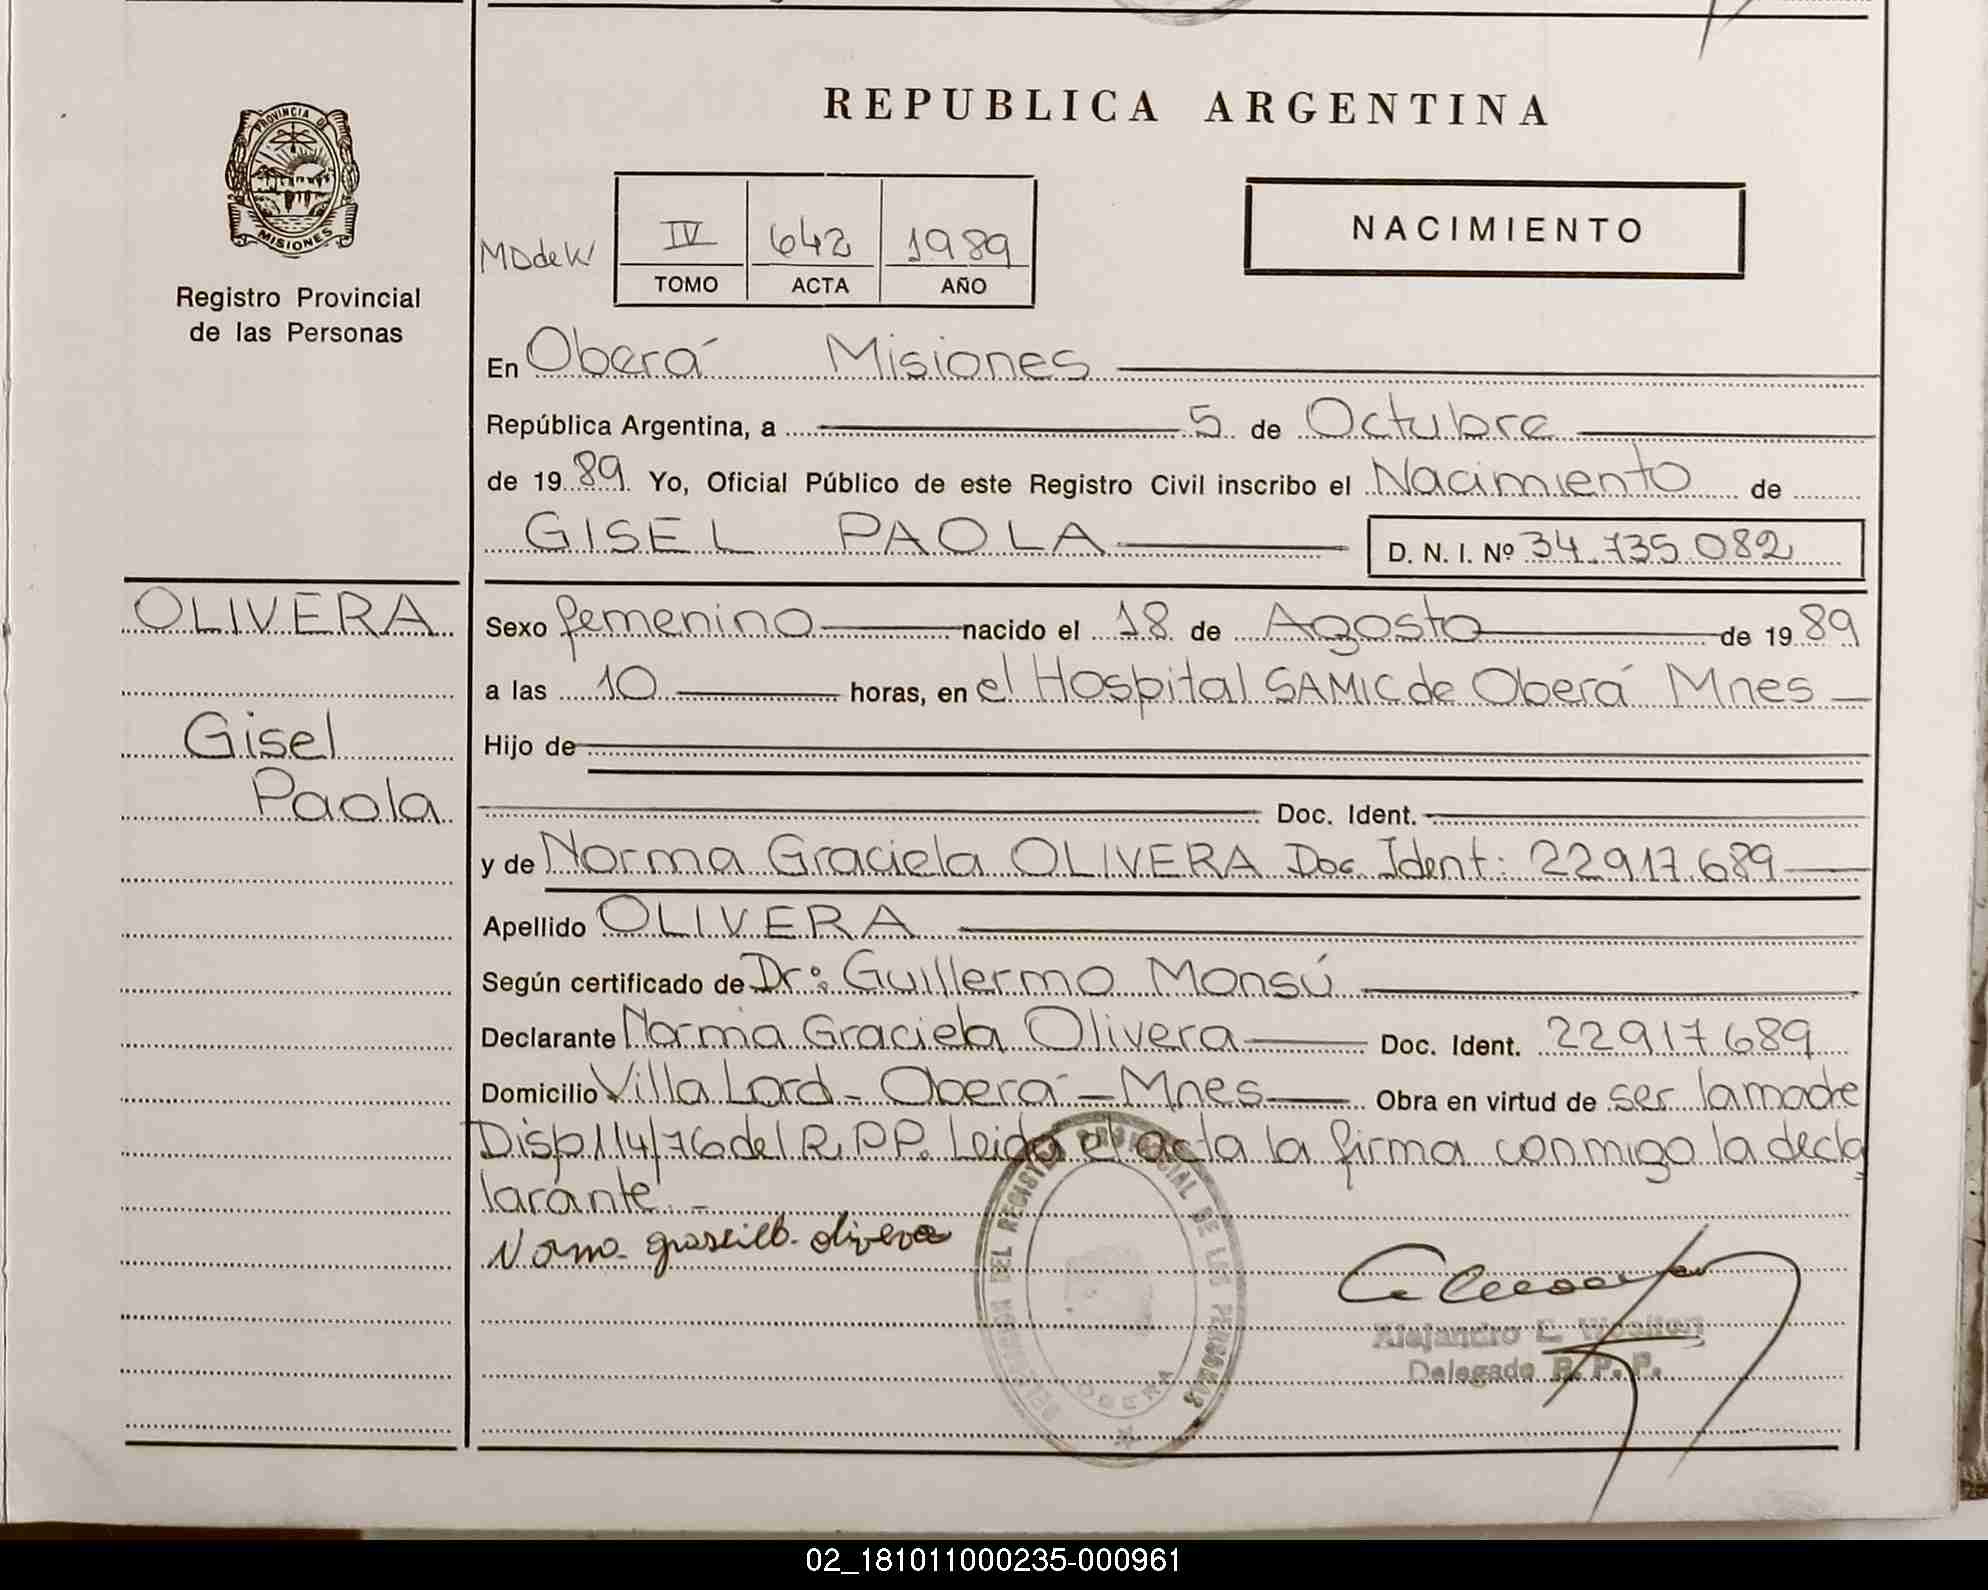 REPUBLICA ARGENTINA
PROVINCIA DE
MISIONES
Registro Provincial
de las Personas
NACIMIENTO
IV 642 1989
TOMO ACTA AÑO
En Oberá Misiones
República Argentina, a 5 de Octubre
de 1989 Yo, Oficial Público de este Registro Civil inscribo el Nacimiento de
GISEL PAOLA D. N. I. Nº 34.735.082
OLIVERA
Gisel
Paola
Sexo femenino nacido el 18 de Agosto de 1989
a las 10 horas, en el Hospital SAMIC de Oberá Mnes
Hijo de
Doc. Ident.
y de Norma Graciela OLIVERA Doc. Ident: 22917689
Apellido OLIVERA
Según certificado de Dr: Guillermo Monsú
Declarante Norma Graciela Olivera Doc. Ident. 22917689
Domicilio Villa Lord - Oberá - Mnes Obra en virtud de ser la madre
Disp 114/76 del R.P.P. Leida el acta la firma conmigo la decla
larante.-
Norma olivera
DEL REGISTRO PROVINCIAL DE LAS PERSONAS
OBERA
Alejandro E.
Delegado R. P. P.
02_181011000235-000961